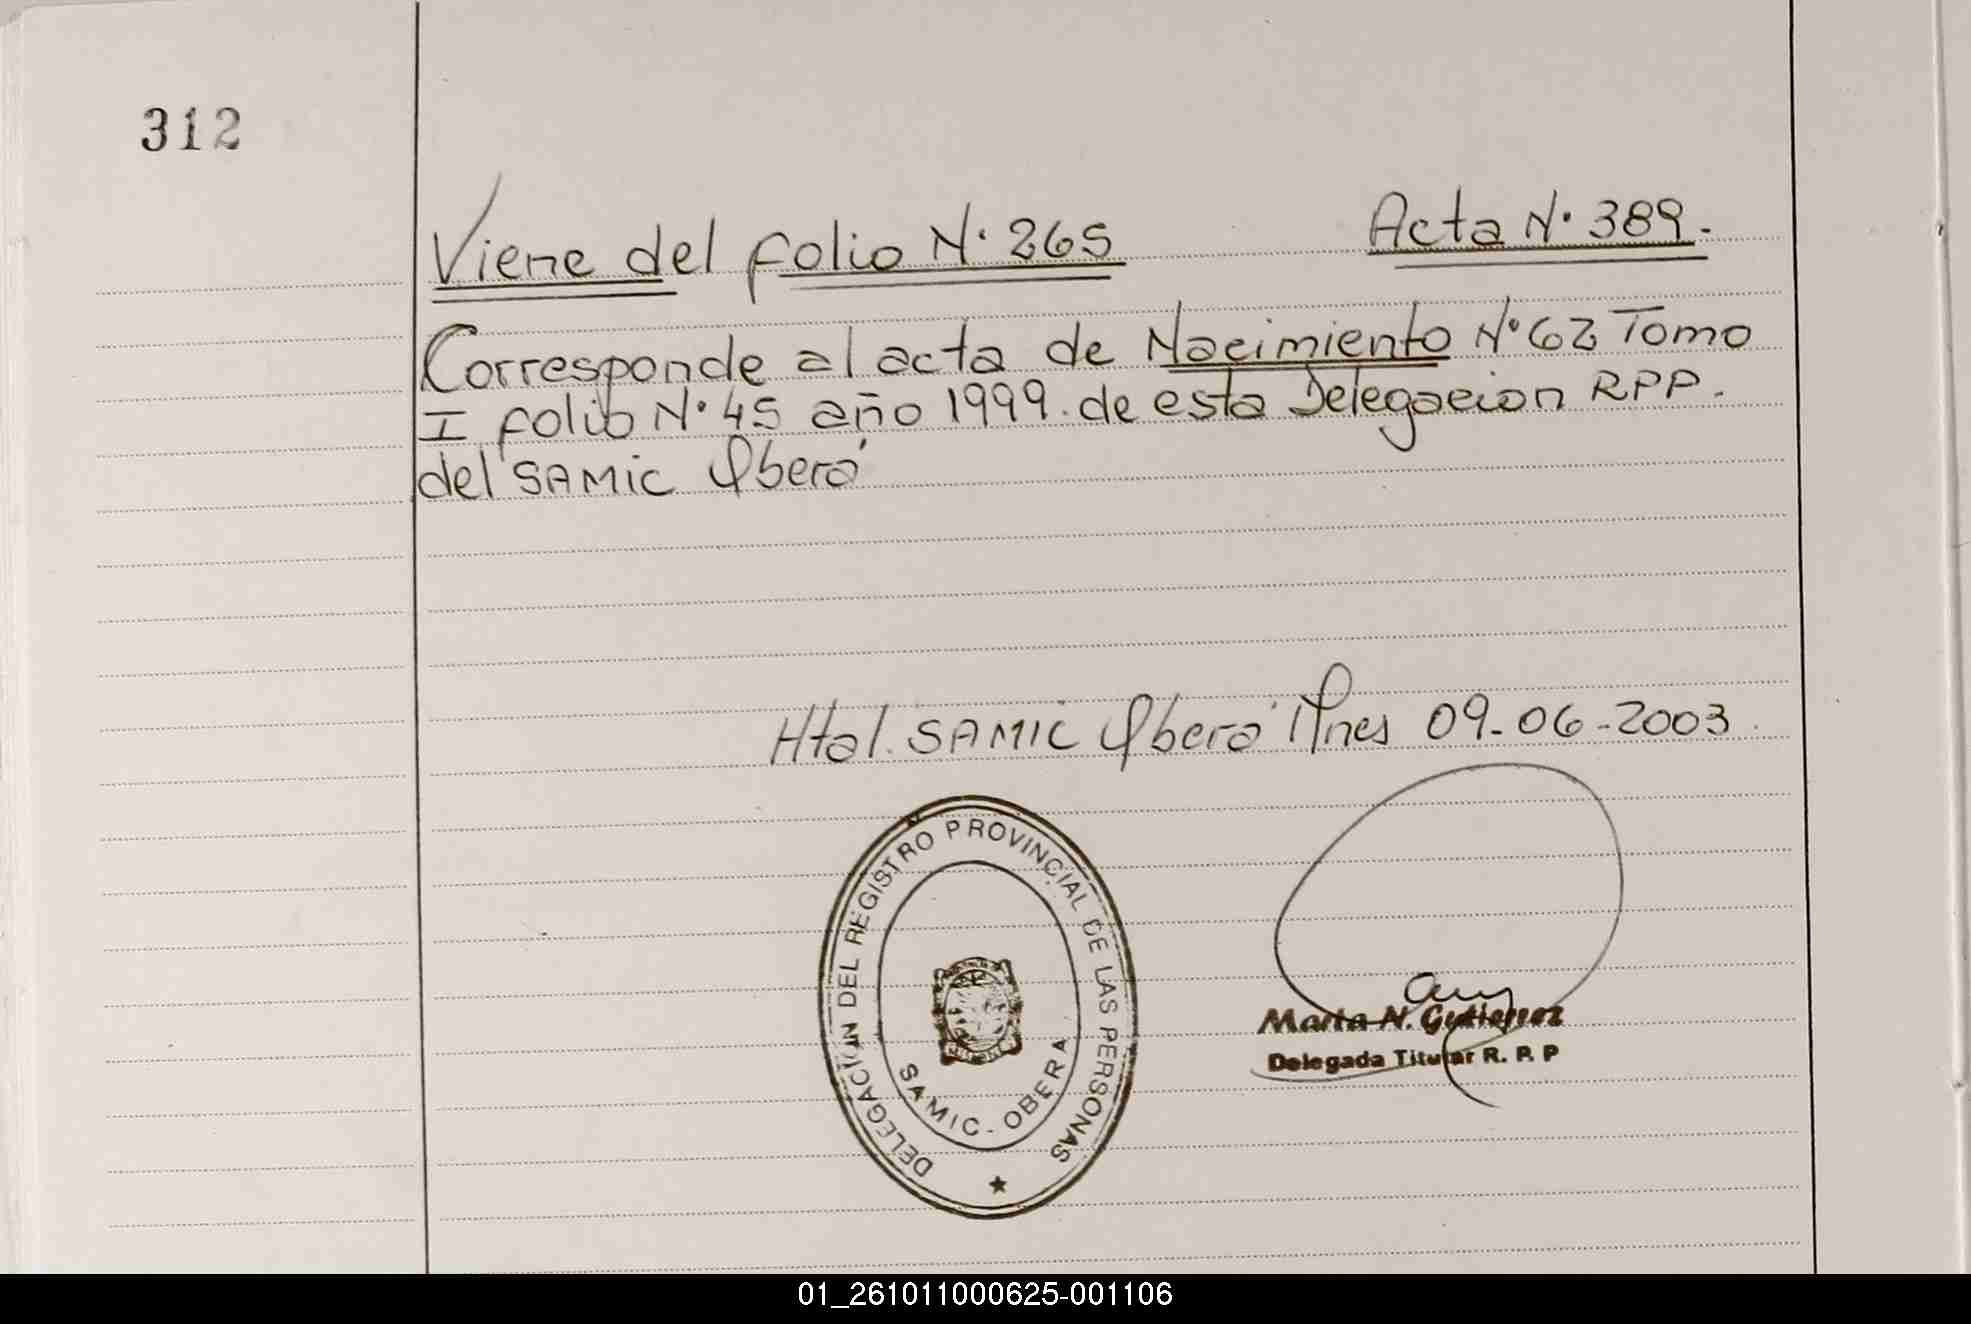 312
Viene del folio N° 265 Acta N° 389.
Corresponde al acta de Nacimiento N° 62 Tomo
I folio N° 45 año 1999. de esta Delegacion RPP.
del SAMIC Oberá
Htal. SAMIC Oberá Mnes 09-06-2003.
DELEGACION DEL REGISTRO PROVINCIAL DE LAS PERSONAS
SAMIC - OBERA
Marta N. Gutierrez
Delegada Titular R. P. P
01_261011000625-001106